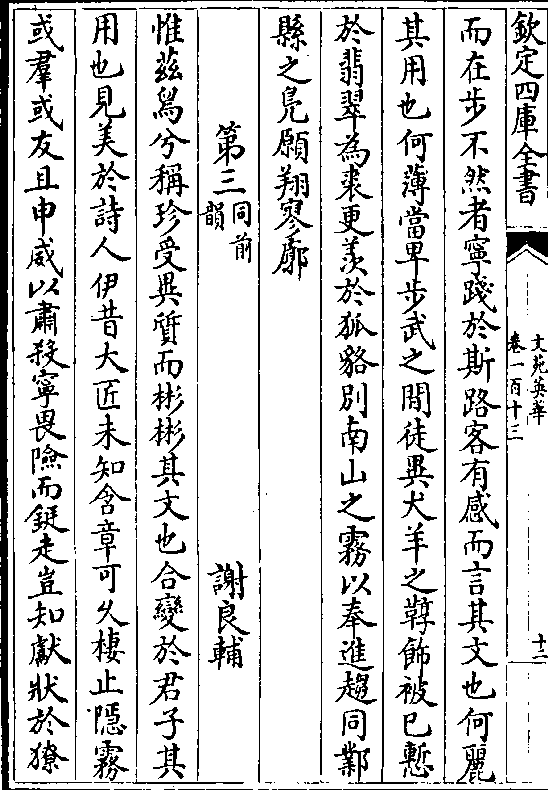 欽定四庫全書
文苑英華
卷一百十三
十二
而在步不然者寧踐於斯路客有感而言其文也何麗
其用也何薄當卑步武之間徒異犬羊之鞟飾被已慙
於翡翠為裘更羡於狐貉別南山之霧以奉進趨同鄴
縣之鳧願翔寥廓
第三同前韻
謝良輔
惟兹舄兮稱珍受異質而彬彬其文也合變於君子其
用也見美於詩人伊昔大匠未知含章可久棲止隱霧
或羣或友且申威以肅殺寧畏險而鋌走豈知獻狀於獠